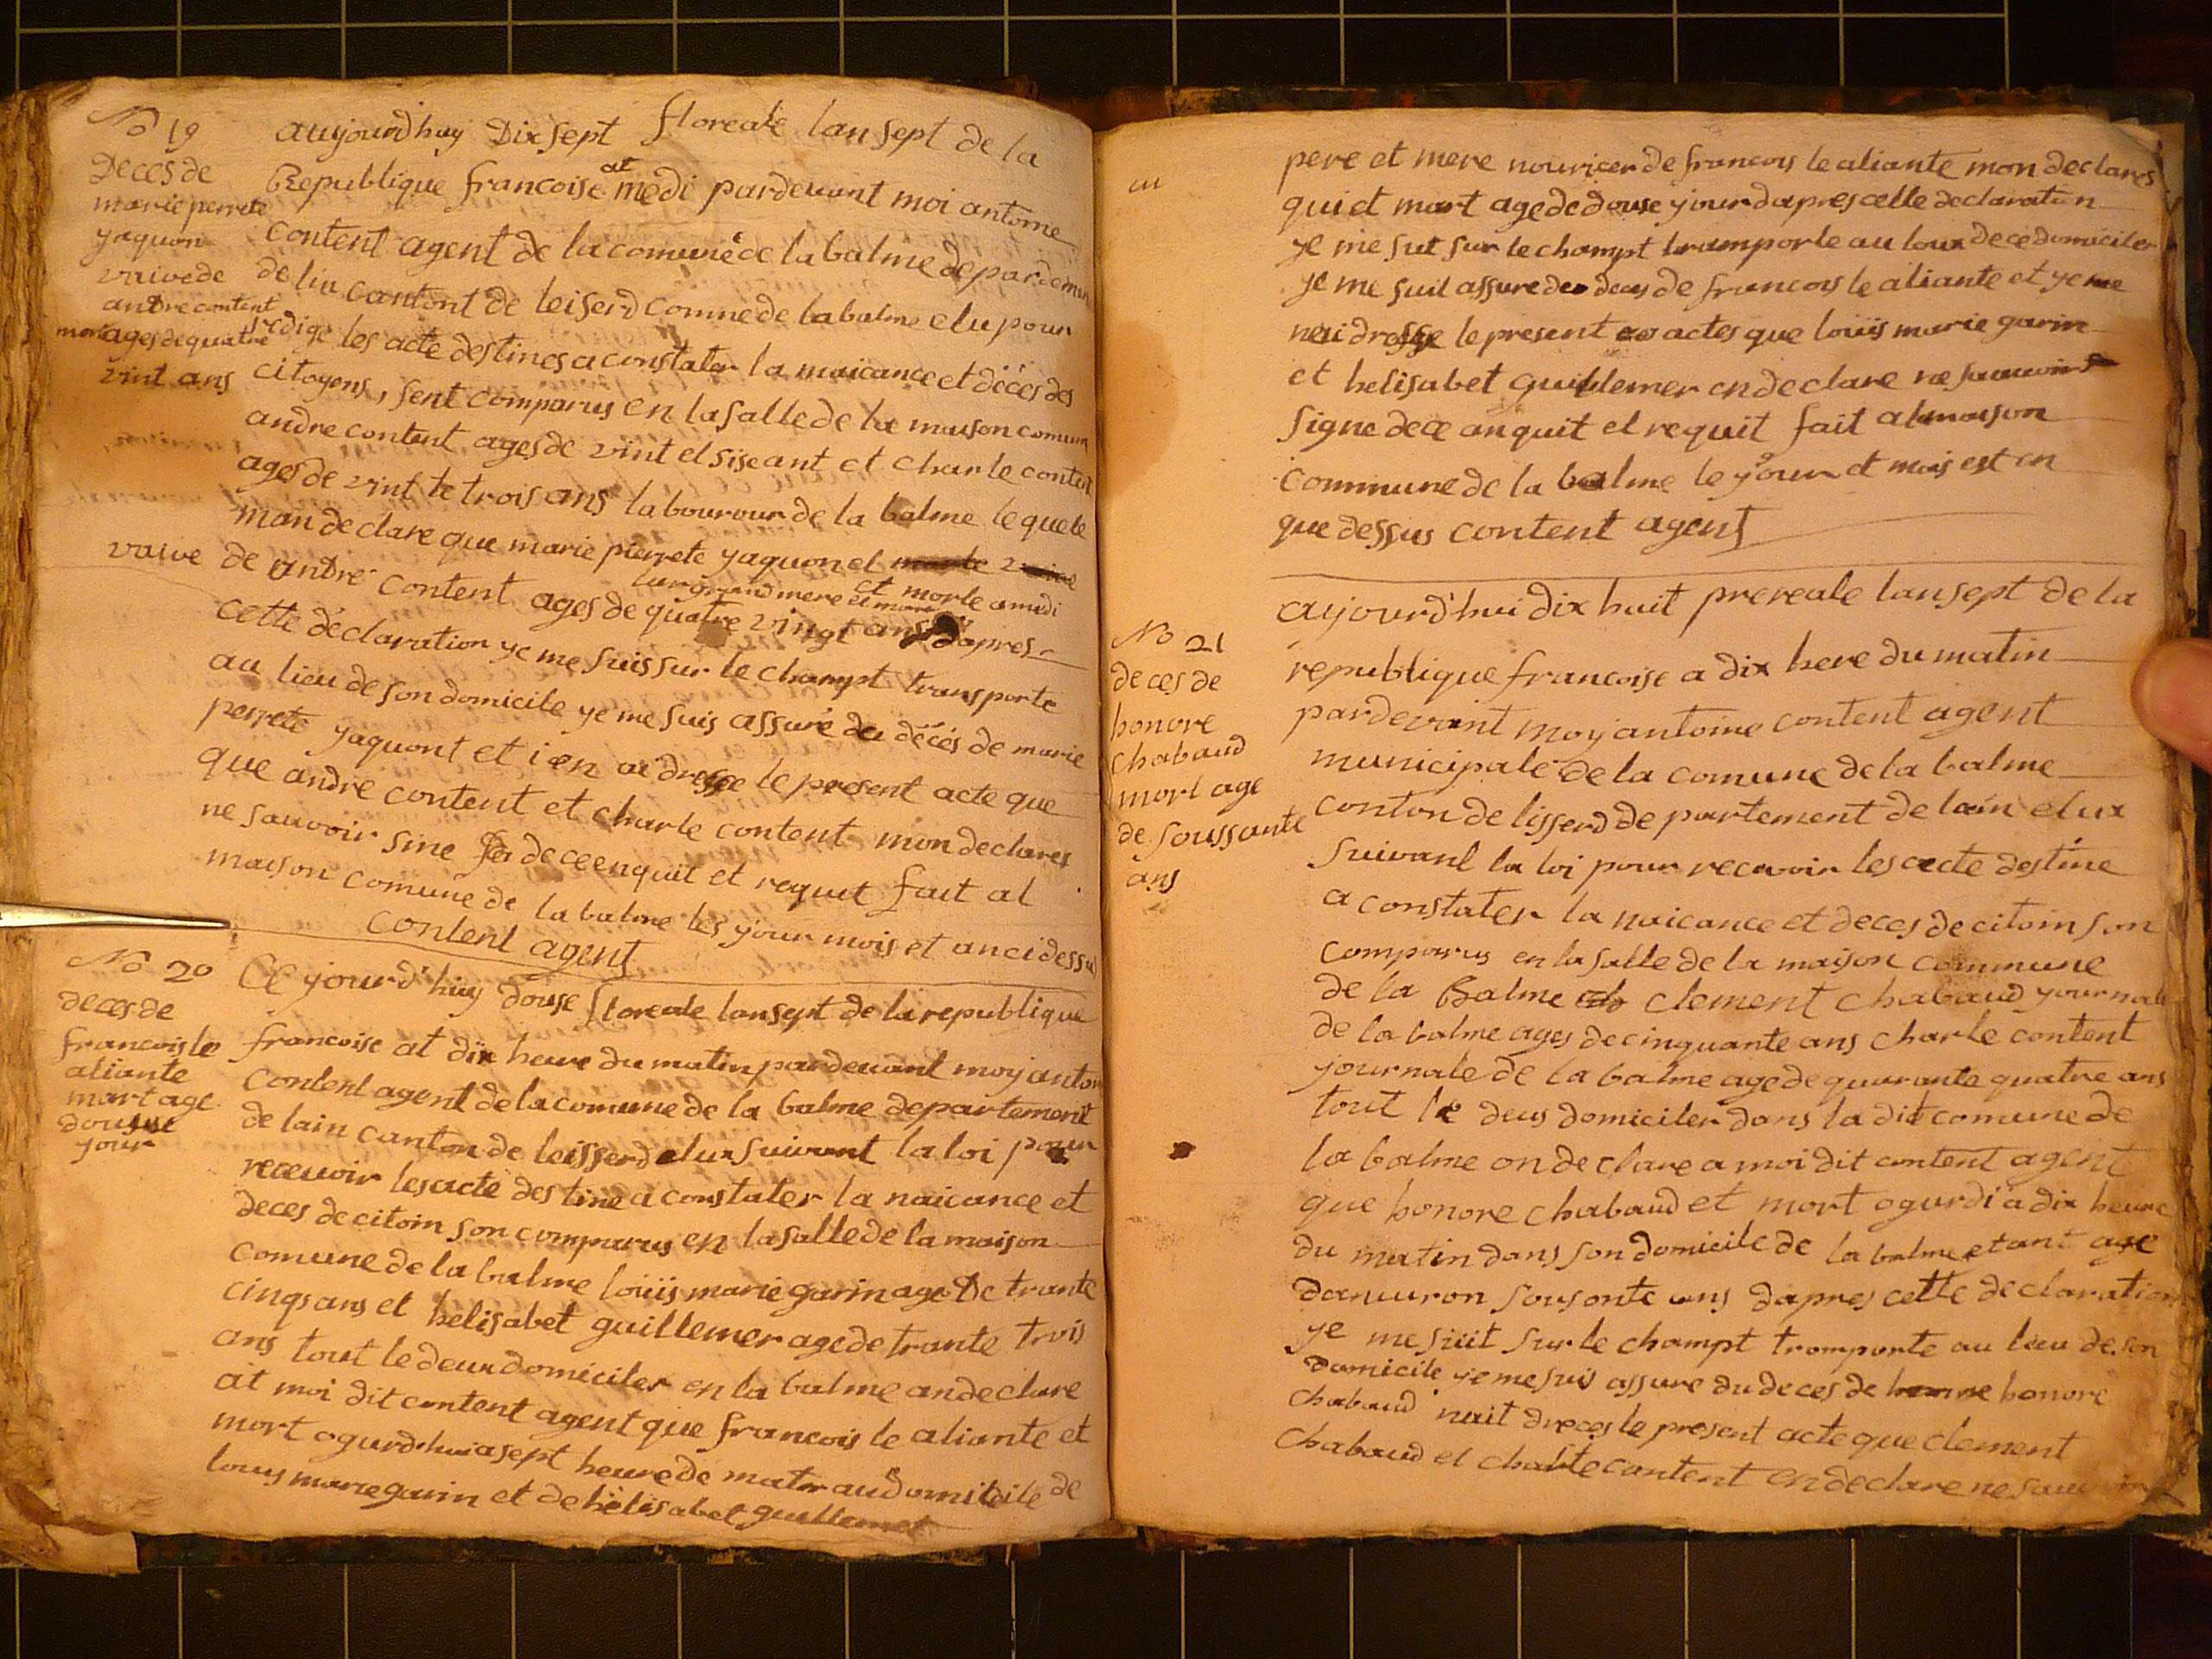 No 19
Deces de
marie perrete
yaquon
vaive de
andre content
mort ages de quatre
vint ans
aujourdhuy Dix sept floreale lan sept de la
Republique francoise at medi pardevant moi antoine
Content agent de la comune de la balme departemen
de lin cantont de leiserd comne de la balme elu pour
redige les acte destines a constater la naicance et décès des
citoyens, sent comparus en la salle de la maison comun
andre content ages de vint et sise ant et charle content
ages de vint te trois ans labourour de la balme le quele
man declare que marie pierrete yaquon et
vaive de andre content ages de quatre vingt ans dapres
lur grand mere et morte a midi
cette déclaration ye me suis sur le champt transporte
au lieu de son domicile ye me suis assuré du décés de marie
perrete yaquont et i en ai dresse le present acte que
que andre content et charle content mon declares
ne sauvoir sine de ce enquit et requit fait al
maison comune de la balme les your mois et an ci dessu
content agent
No 20
deces de
francois le
aliante
mart age
douse
your
Ce yourd'huy douse floreale lan sept de la republique
francoise at dix heure du matin pardevant moy anton
Content agent de la comune de la balme departement
de lain canton de leisserd elu suivant la loi pour
recevoir les acte destine a constater la naicance et
deces de citoin son comparus en la salle de la maison
comune de la balme loüis marie garin age De trante
cinqs ans et hélisabet guillemer age de trante trois
ans tout le deux domiciler en la balme an declare
at moi dit content agent que francois le aliante et
mort ogurdhui a sept heure de matin au domicile de
louys marie garin et de hélisabet guillemet
pere et mere nouricer de francois le aliante mon declares
qui et mart age de douse your dapres celle declaration
ye me suit sur le champt tramporte au loux de ce domiciler
ye me suit assure de deces de francois le aliante et ye me
nai dresse le present actes que loüis marie garin
et helisabet guillemer en declare ne sauvoir
signe de ce anquit et requit fait al maison
commune de la balme le your et mois est en
que dessus content agent
No 21
deces de
honore
chabaud
mort age
de soussante
ans
aujourd'hui dix huit prereale lan sept de la
republique francoise a dix here du matin
pardevant moy antoine content agent
municipale de la comune de la balme
conton de lisserd departement de lain elux
suivant la loi pour recevoir les acte destine
a constater la naicance et deces de citoin son
comparus en la salle de la maison commune
de la Balme clement chabaud yournale
de la balme ages de cinquante ans charle content
journale de la balme age de quarante quatre ans
tout le deus domiciler dans la dit comune de
la balme on declare a moi dit content agent
que honore chabaud et mort ogurdi a dix heure
du matin dans son domicile de la balme etant age
danvuron sousonte ans dapres cette declaration
ye me suit sur le champt tromporte au lieu de son
domicile ye me suis assure du deces de honore
chabaud nait dreces le present acte que clement
chabaud et charle content en declare ne